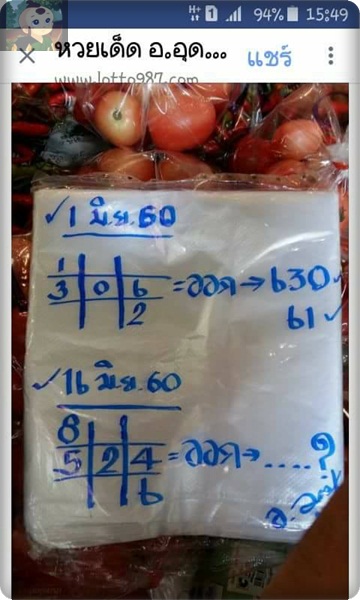 H+ 1 94% 15:49
หวยเด็ด อ.อุด... แชร์
www.lotto987.com
✓1 มิย.60
1
3 0 6 =ออก→ 630 ✓
2 61 ✓
✓16 มิย.60
8
5 2 4 =ออก→....?
6